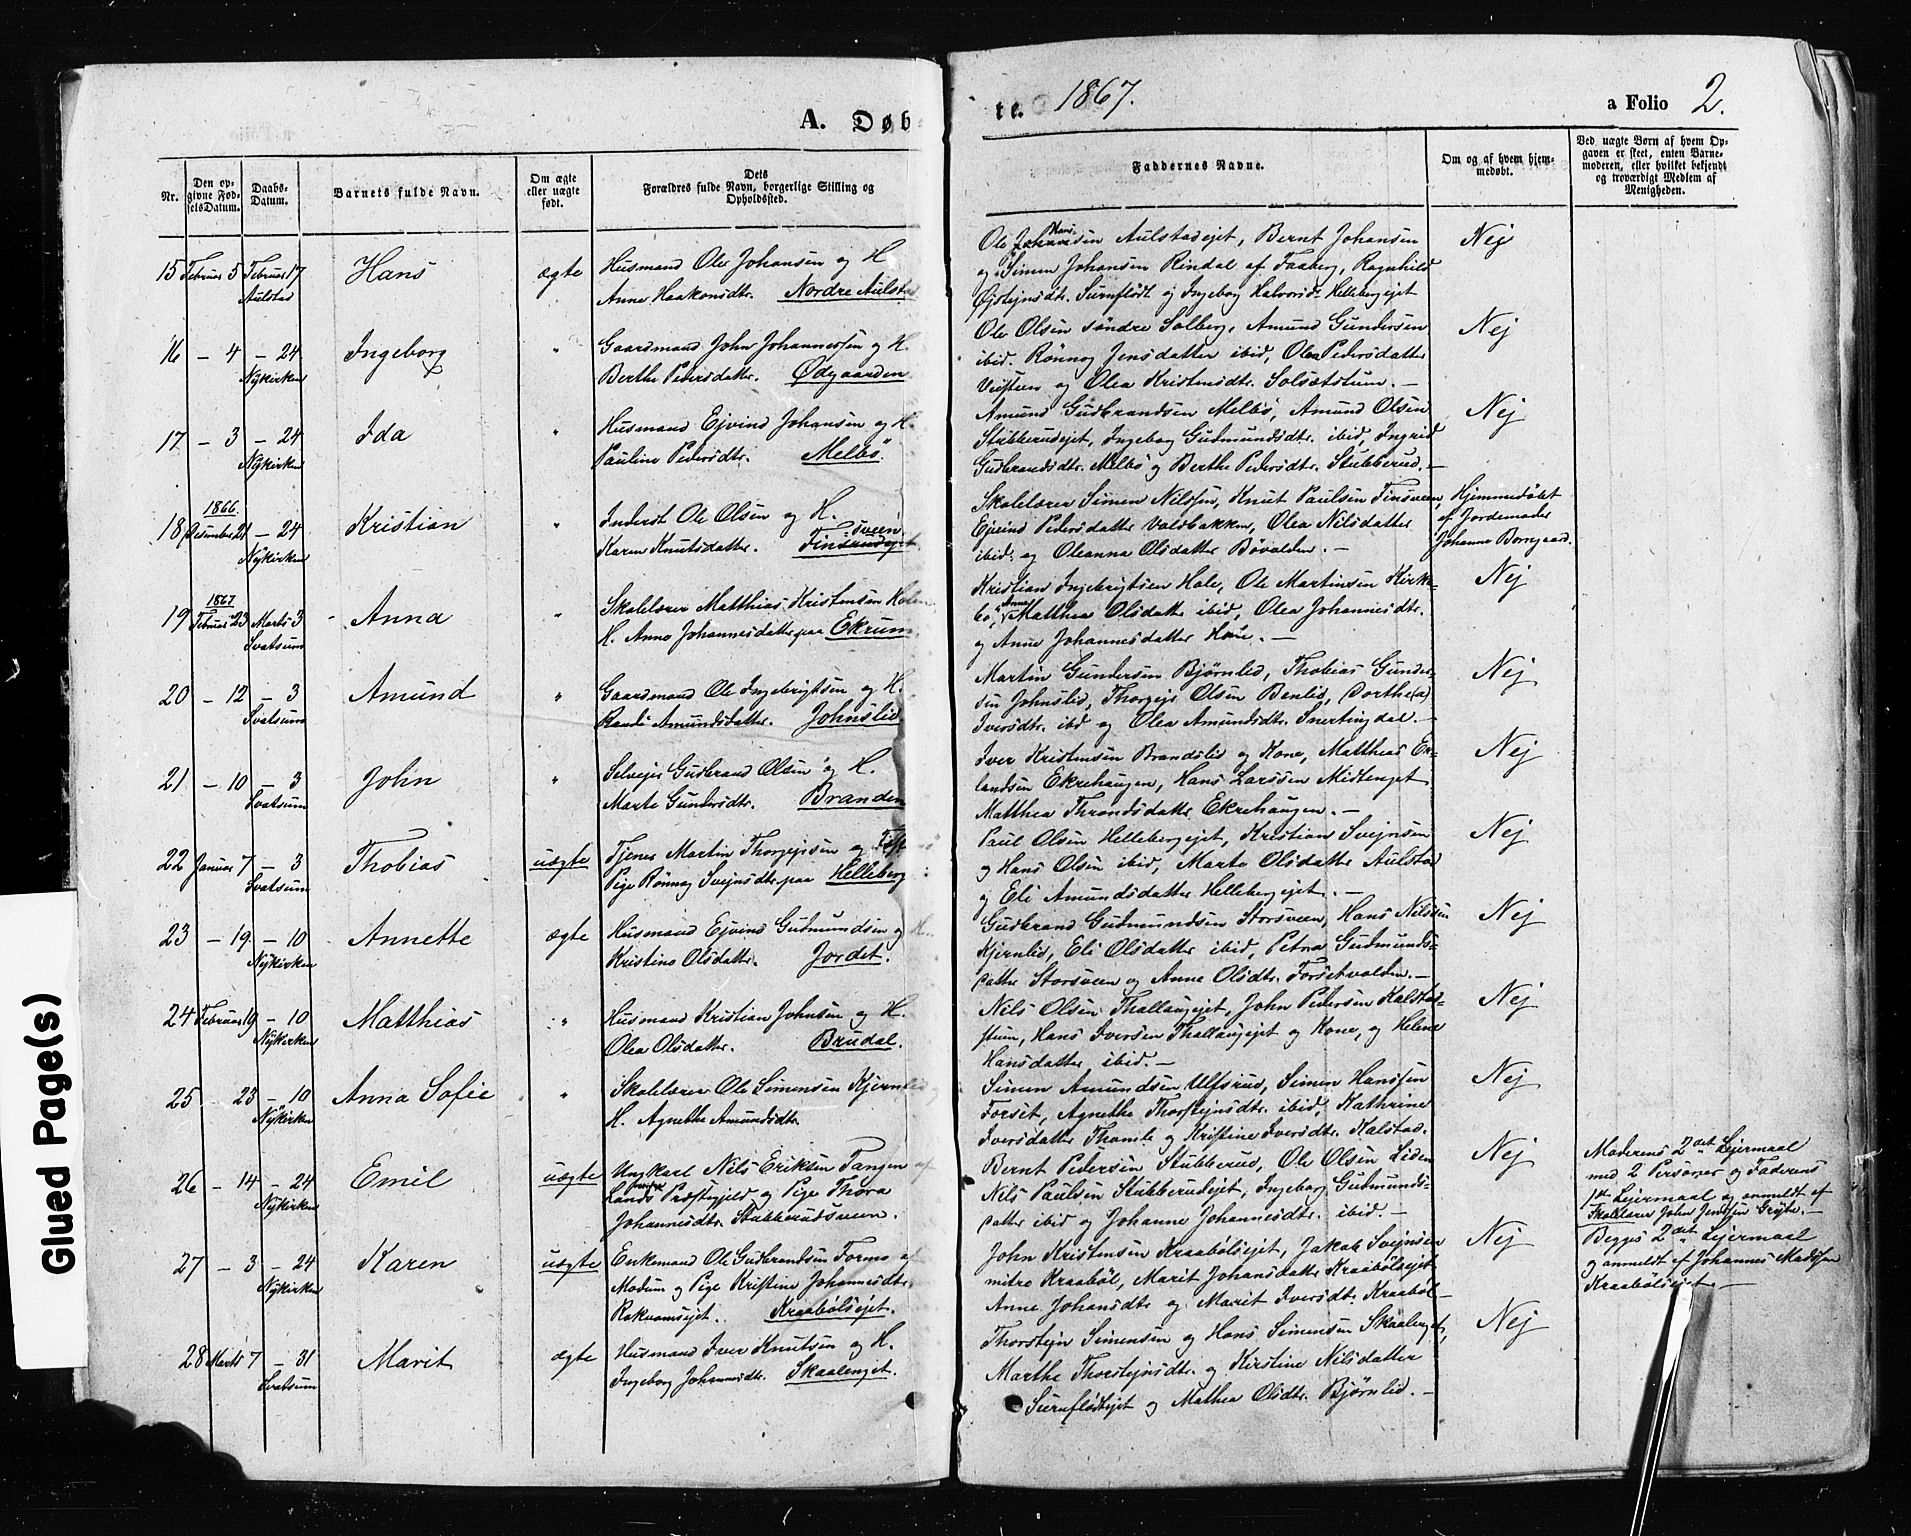 A. Døb-
te. 1867.
a Folio 2.
Nr.
Den op-
givne Fød-
selsDatum.
Daabs-
Datum.
Barnets fulde Navn.
Om ægte
eller uægte
født.
Dets
Forældres fulde Navn, borgerlige Stilling og
Opholdssted.
Faddernes Navne.
Om og af hvem hjem-
medøbt.
Ved uægte Børn af hvem Op-
gaven er skeet, enten Barne-
moderen, eller hvilket bekjendt
og troværdigt Medlem af
Menigheden.
15 Februar 5 Februar 17 Aulstad
Hans
ægte
Husmand Ole Johansen og H
Anne Haakonsdtr. Nordre Aulstad
Ole Hansen Aulstadejet, Bernt Johansen
og Simen Johansen Rindal af Faaberg, Ragnhild
Øjstejnsdtr. Surnflødt og Ingebog Halvorsdr. Hellebergejet
Nej
16 - 4 - 24 Nykirken
Ingeborg
"
Gaardmand John Johannessen og H.
Berthe Pedersdatter. Ødegaarden
Ole Olsen søndre Solberg, Amund Gundersen
ibid. Rønnog Jensdatter ibid, Olea Pedersdatter
Veisteen og Olea Kristensdtr. Solsætstuen. -
Nej
17 - 3 - 24 Nykirken
Ida
"
Husmand Ejvind Johansen og H.
Pauline Pedersdtr. Melbö.
Amund Gudbrandsen Melbö, Amund Olsen
Stubberudejet, Ingebog Gudmundsdtr. ibid, Ingrid
Gudbrandsdtr. Melbö og Berthe Pedersdtr. Stubberud. -
Nej
1866.
18 Desember 21 - 24 Nykirken
Kristian
"
Inderst Ole Olsen og H.
Karen Knutsdatter. Finsveen
Skolelærer Simen Nilssen, Knut Paulsen Finsveen,
Ejvind Pedersdatter Valdbakken, Olea Nilsdatter
ibid. og Oleanna Olsdatter Bövalden. -
Hjemmedøbt
af Jordemoder
Johanne Borregaard.
1867
19 Februar 23 Marts 3 Svatsum
Anna
"
Skolelærer Matthias Kristensen Holen
H. Anne Johannesdatter paa Ekrum
Kristian Ingebrigtsen Hole, Ole Martinsen Kirke-
bö, Anne Matthea Olsdatter ibid, Olea Johannesdtr.
og Anne Johannesdatter Hole. -
Nej
20 - 12 - 3 Svatsum
Amund
"
Gaardmand Ole Ingebrigtsen og H.
Randi Amundsdatter. Johnslid
Martin Gundersen Bjørnlid, Thobias Gunder-
sen Johnslid, Thorgejr Olsen Benlid, Dorthe(a)
Iversdtr. ibd og Olea Amundsdtr. Snertingdal. -
Nej
21 - 10 - 3 Svatsum
John
"
Selvejer Gudbrand Olsen og H.
Marte Gundersdtr. Branden
Iver Kristensen Brandslid og Kone, Matthias Er-
landsen Ekrehaugen, Hans Larssen Midtenget
Matthea Throndsdatter Ekrehaugen. -
Nej
22 Januar 7 - 3 Svatsum
Thobias
uægte
Tjener Martin Thorgejrsen og
Pige Rønnog Svejnsdtr. paa Helleberg
Paul Olsen Hellebergejet, Kristian Svejnsen
og Hans Olsen ibid, Marte Olsdatter Aulstad
og Eli Amundsdatter Hellebergejet. -
Nej
23 - 19 - 10 Nykirken
Annette
ægte
Husmand Ejvind Gudmundsen og H.
Kristine Olsdatter. Jordet.
Gudbrand Gudmundsen Storsveen, Hans Nilssen
Kjernlid, Eli Olsdatter ibid, Petra Gudmunds-
datter Storsveen og Anne Olsdtr. Forsetvolden. -
Nej
24 Februar 19 - 10 Nykirken
Matthias
"
Husmand Kristian Johnsen og H.
Olea Olsdatter. Brudal.
Nils Olsen Thallaugejet, John Pedersen Kalstad-
stuen, Hans Iversen Thallaugejet og Kone, og Helene
Hansdatter ibid. -
Nej
25 - 23 - 10 Nykirken
Anna Sofie
"
Skolelærer Ole Simensen Kjernlid
H. Agnethe Amundsdtr.
Simen Amundsen Ulfsrud, Simen Hanssen
Forset, Agnethe Thorstejnsdtr. ibid, Kathrine
Iversdatter Thomle og Kristine Iversdtr. Kalstad.
Nej
26 - 14 - 24 Nykirken
Emil
uægte
Ungkarl Nils Eriksen Tangen af
Lands Præstegjeld og Pige Thora
Johannesdtr. Stubberudsveen.
Bernt Pedersen Stubberud, Ole Olsen Liden
Nils Paulsen Stubberudejet, Ingebog Gudmunds-
datter ibid og Johanne Johannesdtr. ibid. -
Nej
Moderens 2det Lejermaal
med 2 Personer og Faderens
1ste Lejermaal og anmeldt af
Skolelærer John Jenssen Gryte. -
27 - 3 - 24 Nykirken
Karen
uægte
Enkemand Ole Gudbrandsen Formo af
Modum og Pige Kristine Johannesdtr.
Rokvamsejet. Kraabölsejet.
John Kristensen Kraabölsejet, Jakob Svejnsen
mitre Kraaböl, Marit Johansdatter Kraabölsejet
Anne Johansdtr. og Marit Iversdtr. Kraaböl -
Nej
Begges 2det Lejermaal
og anmeldt af Johannes Madssen
Kraabölsejet. -
28 Marts 7 - 31 Svatsum
Marit
ægte
Husmand Iver Knutsen og H.
Ingeborg Johannesdtr. Skaalenget.
Thorstejn Simensen og Hans Simensen Skaalenget,
Marthe Thorstejnsdtr. og Kirstine Nilsdatter
Surnflødtejet og Mathea Olsdtr. Bjørnlid. -
Nej
Glued Page(s)